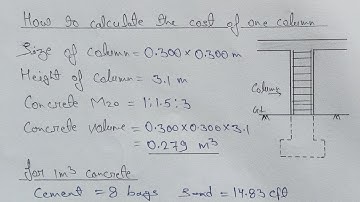 How to calculate the cost of one column
Size of column = 0.300 x 0.300 m
Height of column = 3.1 m
Concrete M20 = 1:1.5:3
Concrete volume = 0.300 x 0.300 x 3.1
= 0.279 m³
Column
GL
for 1m³ concrete
Cement = 8 bags Sand = 14.83 cft